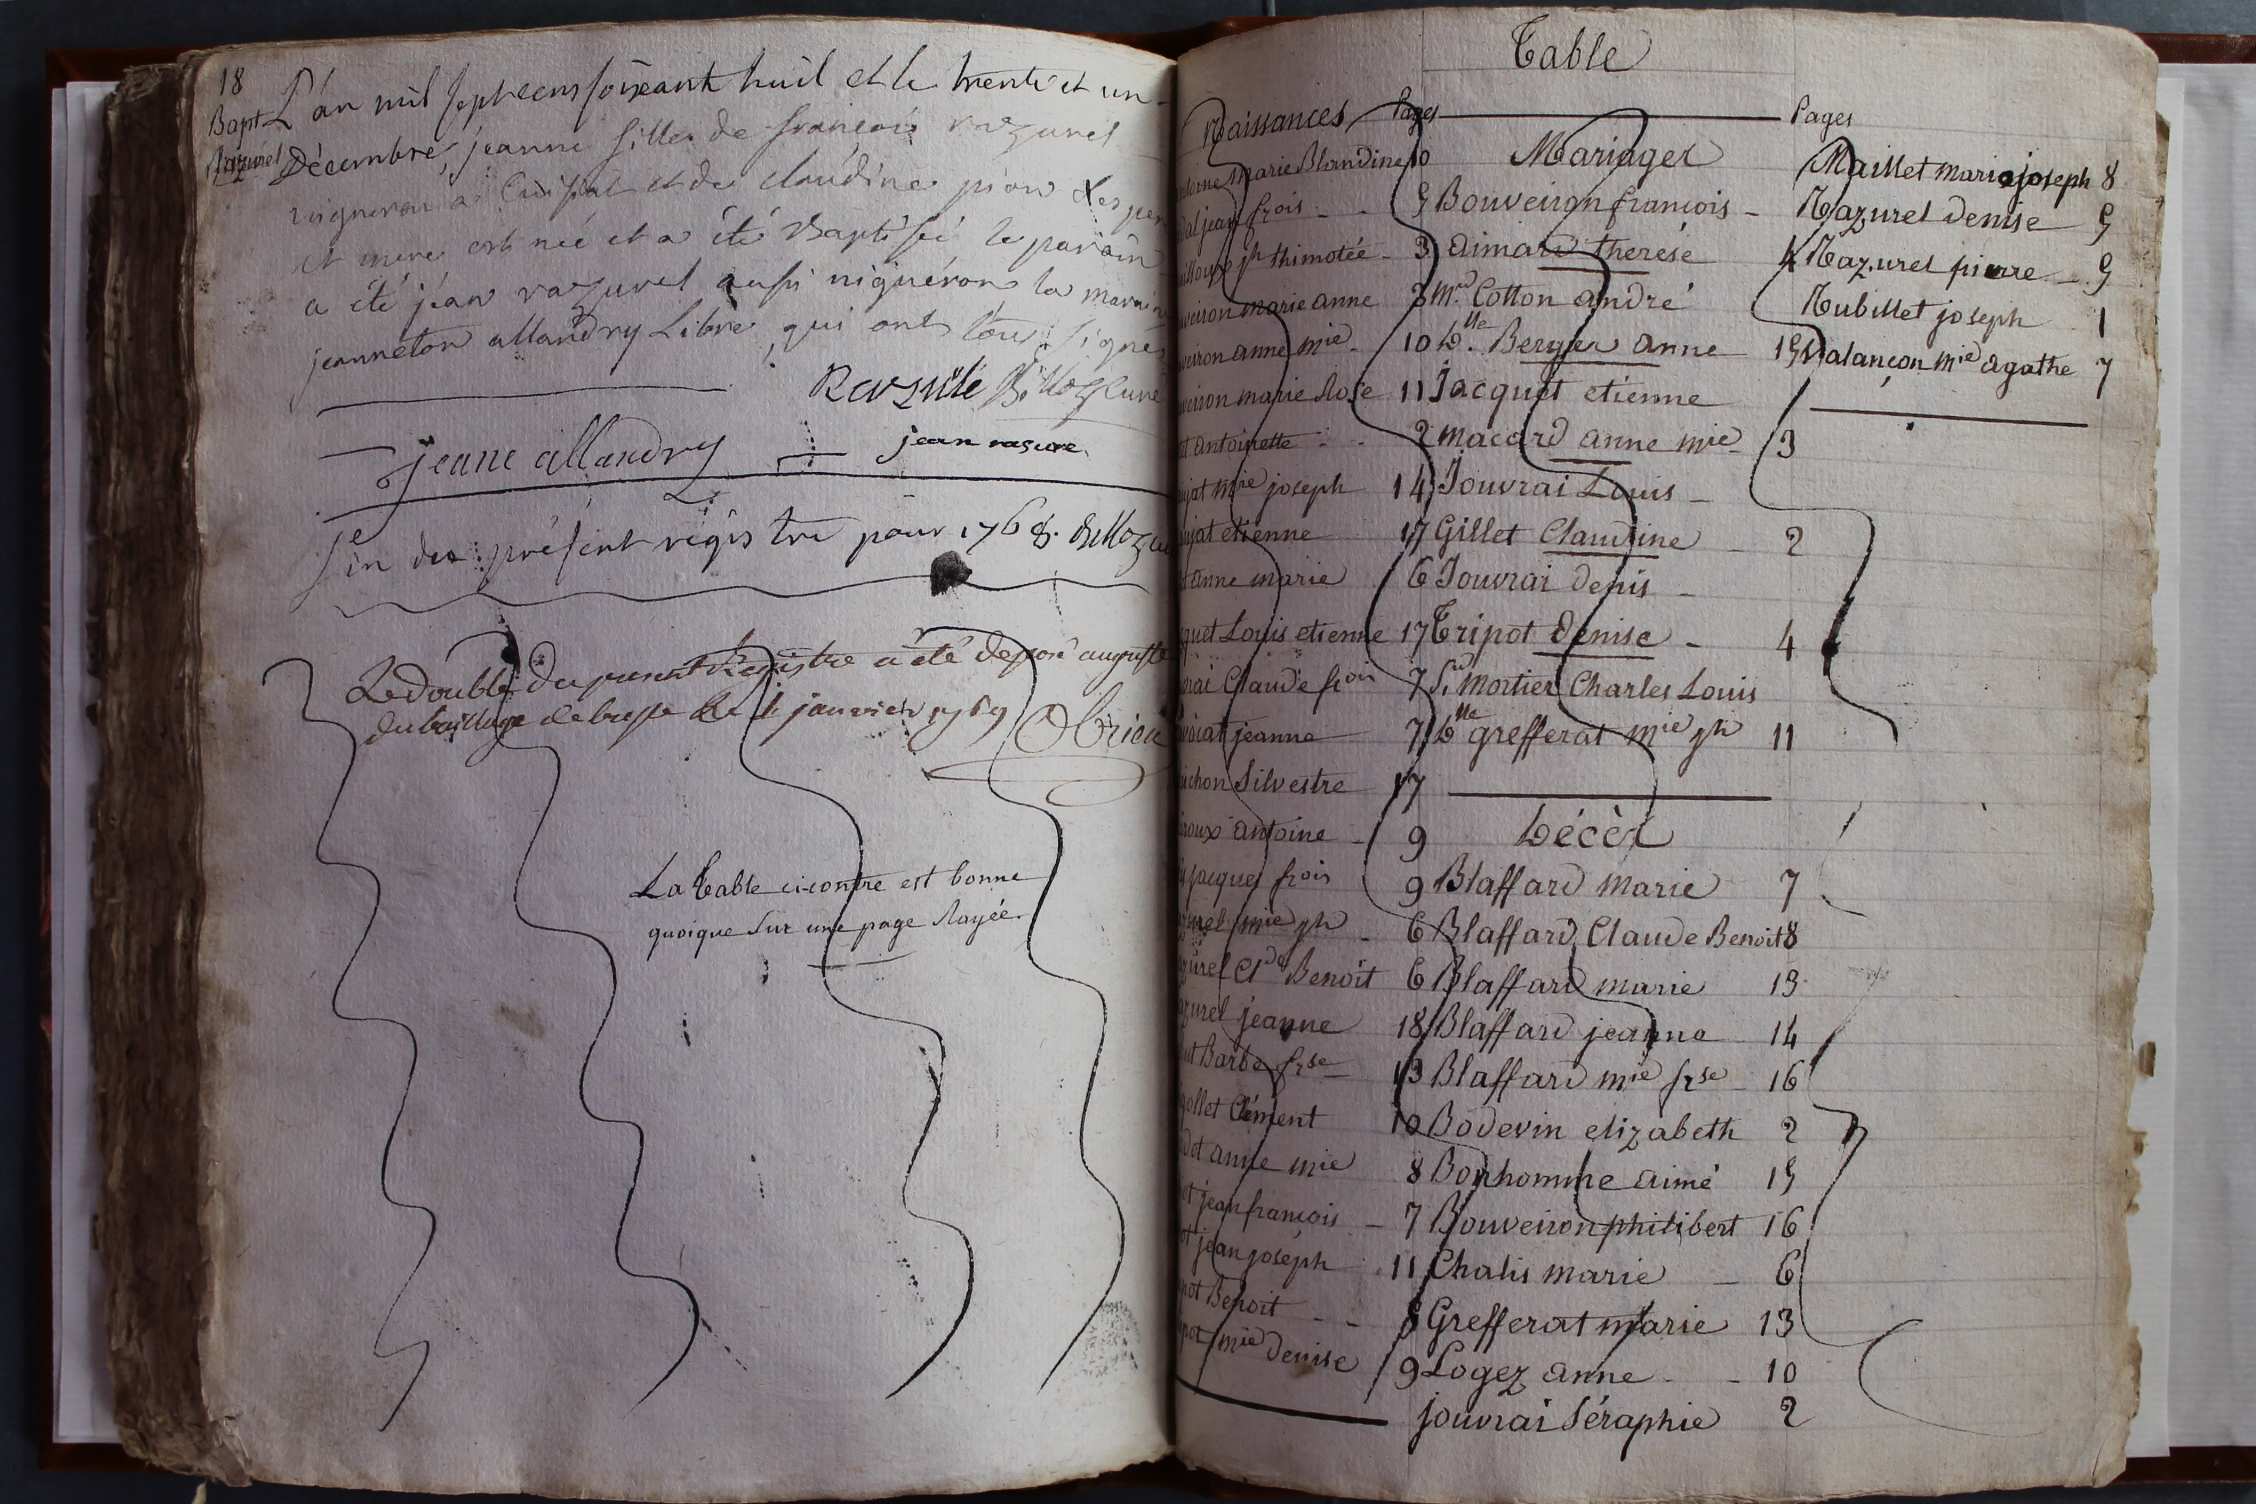 18
Bapt L'an mil septcens soixante huit et le trente et un
Razurel Décembre, jeanne fille de françois razurel
vigneron a Cuisiat et de claudine pion les pere
et mere est neé et a été Baptisée le parain
a été jean razurel aussi vigneron la maraine
jeanneton allandry Libre, qui ont tous signés
Razurel Billoz Curé
jeane allandry jean rasure
fin du présent régistre pour 1768. Billoz cu
Le double du present Registre a été deposé au greffe
du bailliage de bresse le 4 janvier 1769
La table ci-contre est bonne
quoique sur une page Rayée
Table
Naissances Pages
marie Blandine 10
jean frois 5
jh thimotée 3
veiron marie anne 3
veiron anne mie 10
veiron marie Rose 11
antoinette 2
mie joseph 14
etienne 17
anne marie 6
quet Louis etienne 17
Claude frois 7
jeanne 7
chon Silvestre 17
roux antoine 9
jacques frois 9
zurel mie jh 6
zurel Cl de Benoit 6
zurel jeanne 18
Barbe frse 13
ollet Clément 10
anne mie 8
jean francois 7
jean joseph 11
Benoit 8
mie denise 9
Mariages
Bouveiron francois
aimard therèse 4
Mr. Cotton andré
Dlle. Berger anne 15
Jacquet etienne
macard anne mie 3
Jouvrai Louis
Gillet Claudine 2
Jouvrai denis
Tripot denise 4
Sr. Mortier Charles Louis
Dlle grefferat mie jh 11
Décès
Blaffard marie 7
Blaffard Claude Benoit 8
Blaffard marie 13
Blaffard jeanne 14
Blaffard mie frse 16
Bodevin elizabeth 2
Bonhomme aimé 15
Bouveiron philibert 16
Chalis marie 6
Grefferat marie 13
Logez anne 10
jouvrai Séraphie 2
Pages
Maillet marie joseph 8
Razurel denise 5
Razurel pierre 5
Rubillet joseph 1
Valançon mie agathe 7